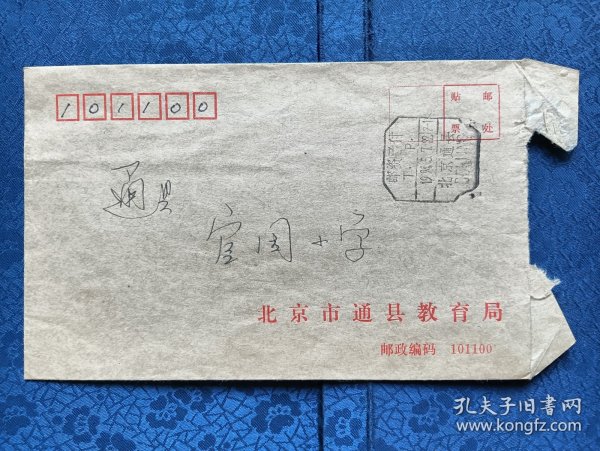 101100
贴 邮
票 处
邮资已付
T. P.
北京通县
通县
官园小学
北京市通县教育局
邮政编码 101100
孔夫子旧书网
www.kongfz.com